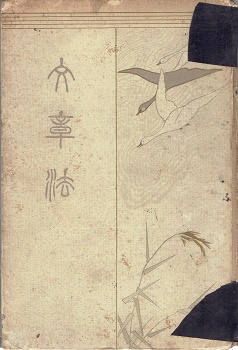 文章法